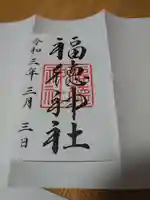 福徳神社
令和三年三月三日